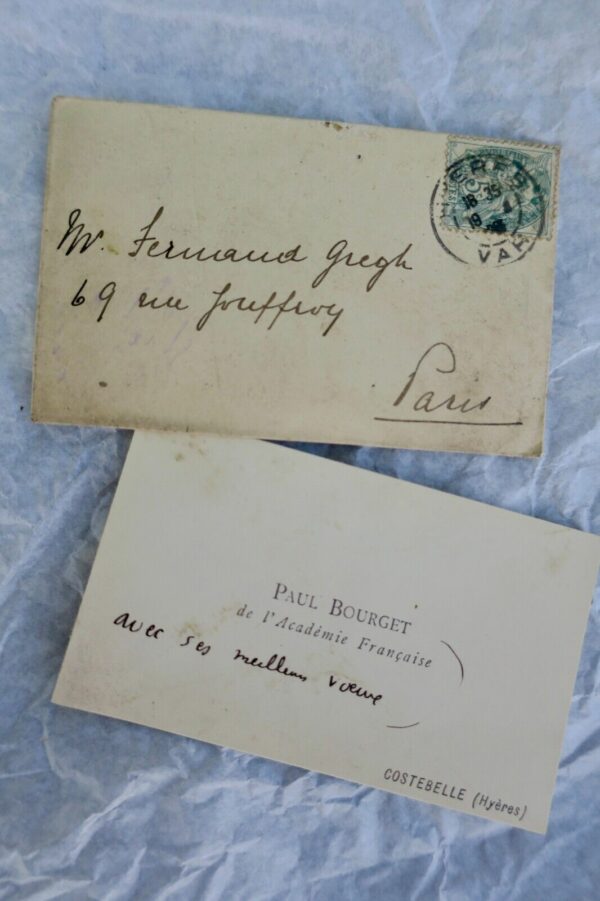 Mr. Fernand Gregh
69 rue Jouffroy
Paris
HYERES
VAR
PAUL BOURGET
de l'Académie Française
avec ses meilleurs voeux
COSTEBELLE (Hyères)